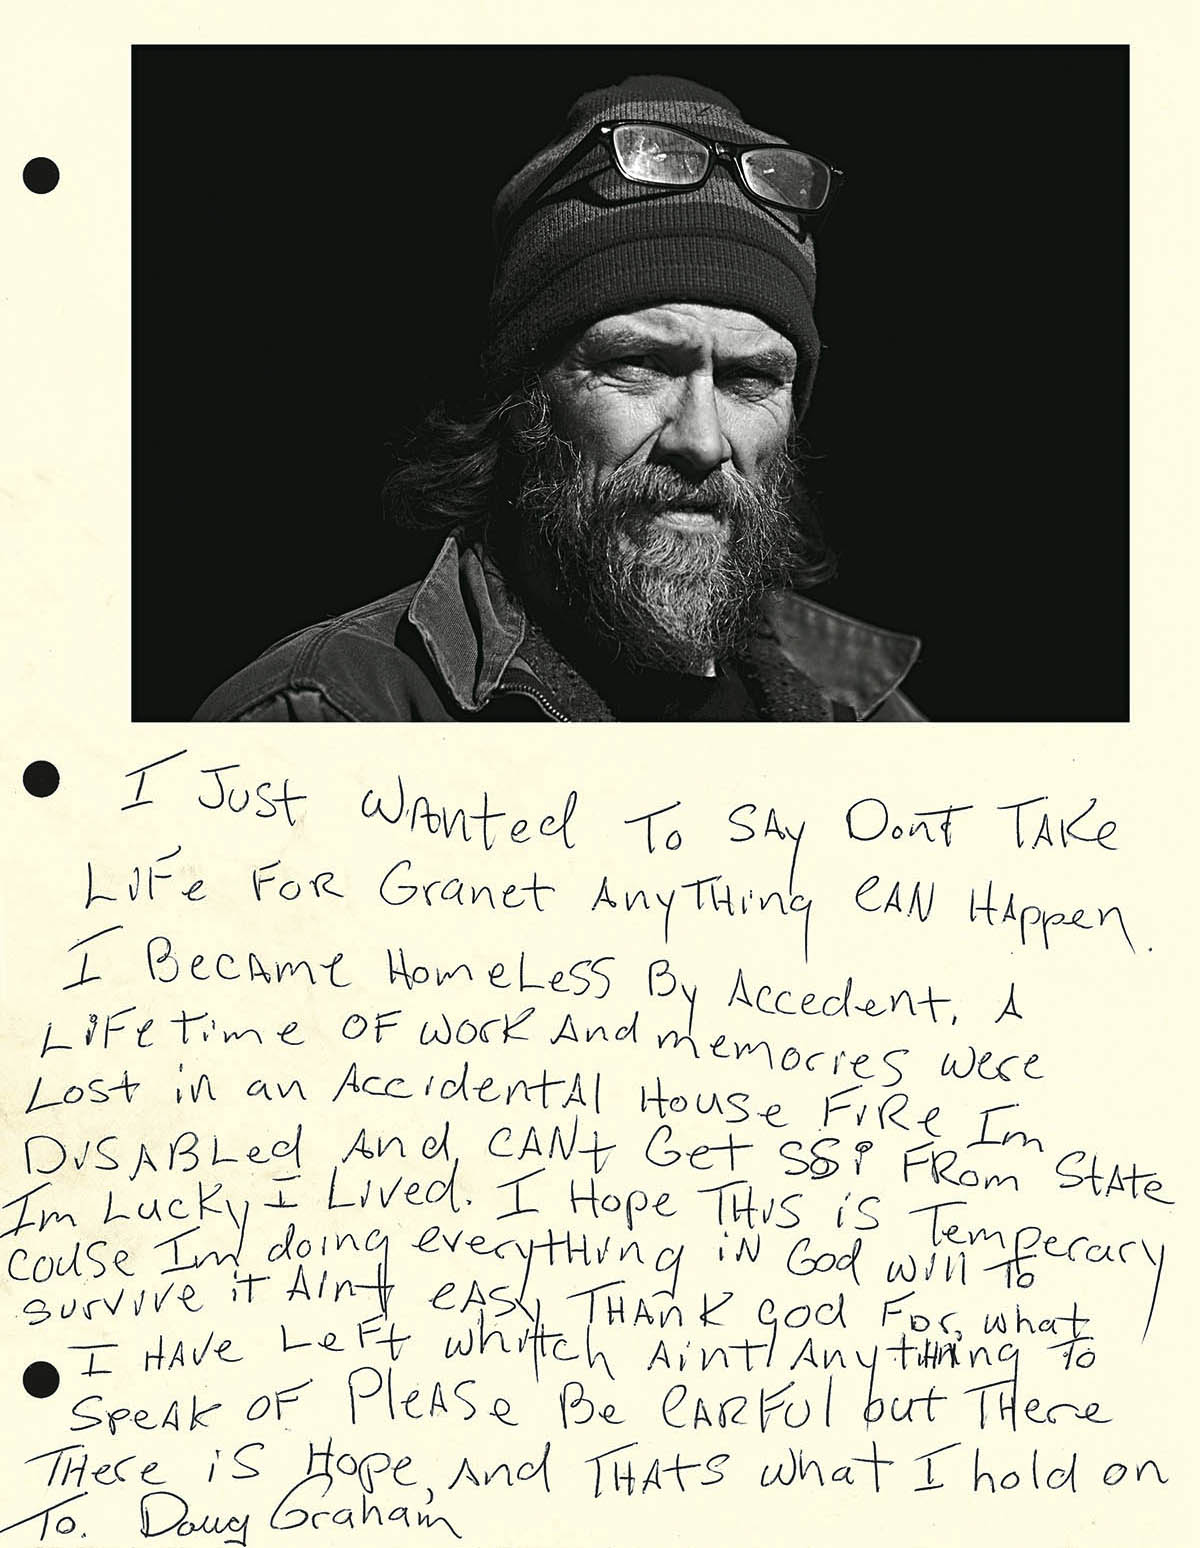 I Just Wanted To SAy Dont TAKe
LiFe FOR Granet AnyTHing CAN HAppen.
I BecAme HomeLeSS By Accedent, A
LiFetime OF WORK And memorres were
Lost in an AccidentAl House FiRe Im
DiSABLed And CANt Get SSi FRom StAte
Im Lucky I Lived. I Hope THiS iS Temperary
couse Im doing everytHing iN God will To
survive it Aint eASy THANK god For, what
I HAve LeFt whitch Aint AnytHing To
SpeAk OF PleASe Be CARFul but THere
THere iS Hope, And THAtS what I hold on
To. Doug Graham